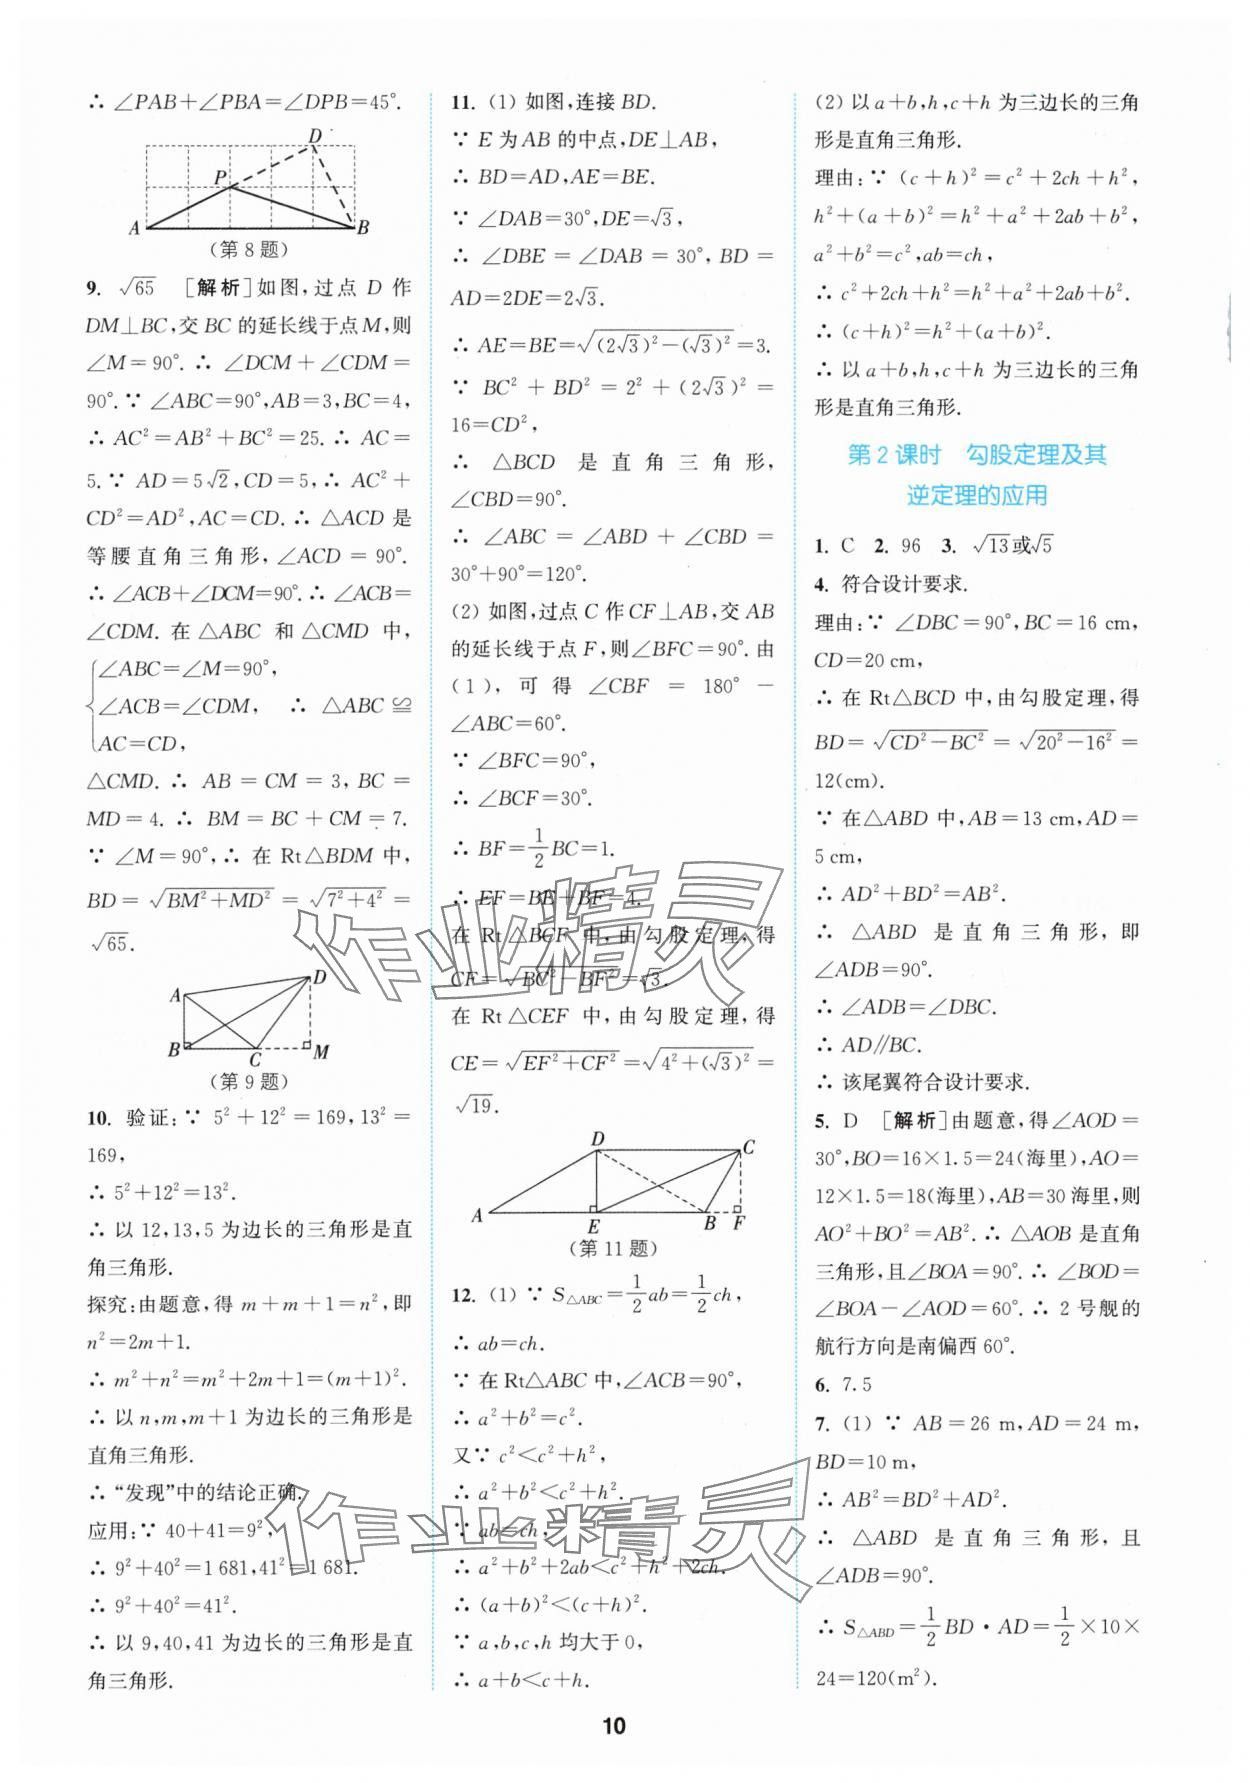 ∴ ∠PAB+∠PBA=∠DPB=45°.
D
P
A
B
(第8题)
9. √65 [解析]如图,过点 D 作
DM⊥BC,交 BC 的延长线于点 M,则
∠M=90°. ∴ ∠DCM+∠CDM=
90°. ∵ ∠ABC=90°,AB=3,BC=4,
∴ AC²=AB²+BC²=25. ∴ AC=
5. ∵ AD=5√2,CD=5,∴ AC²+
CD²=AD²,AC=CD. ∴ △ACD 是
等腰直角三角形,∠ACD=90°.
∴ ∠ACB+∠DCM=90°. ∴ ∠ACB=
∠CDM. 在 △ABC 和 △CMD 中,
∠ABC=∠M=90°,
∠ACB=∠CDM, ∴ △ABC≌
AC=CD,
△CMD. ∴ AB=CM=3,BC=
MD=4. ∴ BM=BC+CM=7.
∵ ∠M=90°,∴ 在 Rt△BDM 中,
BD=√(BM²+MD²)=√(7²+4²)=
√65.
A
D
B
C
M
(第9题)
10. 验证:∵ 5²+12²=169,13²=
169,
∴ 5²+12²=13².
∴ 以 12,13,5 为边长的三角形是直
角三角形.
探究:由题意,得 m+m+1=n²,即
n²=2m+1.
∴ m²+n²=m²+2m+1=(m+1)².
∴ 以 n,m,m+1 为边长的三角形是
直角三角形.
∴ “发现”中的结论正确.
应用:∵ 40+41=9²,
∴ 9²+40²=1 681,41²=1 681.
∴ 9²+40²=41².
∴ 以 9,40,41 为边长的三角形是直
角三角形.
11. (1) 如图,连接 BD.
∵ E 为 AB 的中点,DE⊥AB,
∴ BD=AD,AE=BE.
∵ ∠DAB=30°,DE=√3,
∴ ∠DBE=∠DAB=30°,BD=
AD=2DE=2√3.
∴ AE=BE=√((2√3)²-(√3)²)=3.
∵ BC²+BD²=2²+(2√3)²=
16=CD²,
∴ △BCD 是直角三角形,
∠CBD=90°.
∴ ∠ABC=∠ABD+∠CBD=
30°+90°=120°.
(2) 如图,过点 C 作 CF⊥AB,交 AB
的延长线于点 F,则∠BFC=90°. 由
(1),可得 ∠CBF=180°-
∠ABC=60°.
∵ ∠BFC=90°,
∴ ∠BCF=30°.
∴ BF=1/2 BC=1.
∴ EF=BE+BF=4.
在 Rt△BCF 中,由勾股定理,得
CF=√(BC²-BF²)=√3.
在 Rt△CEF 中,由勾股定理,得
CE=√(EF²+CF²)=√(4²+(√3)²)=
√19.
D
C
A
E
B
F
(第11题)
12. (1) ∵ S△ABC=1/2 ab=1/2 ch,
∴ ab=ch.
∵ 在 Rt△ABC 中,∠ACB=90°,
∴ a²+b²=c².
又∵ c²<c²+h²,
∴ a²+b²<c²+h².
∵ ab=ch,
∴ a²+b²+2ab<c²+h²+2ch.
∴ (a+b)²<(c+h)².
∵ a,b,c,h 均大于 0,
∴ a+b<c+h.
(2) 以 a+b,h,c+h 为三边长的三角
形是直角三角形.
理由:∵ (c+h)²=c²+2ch+h²,
h²+(a+b)²=h²+a²+2ab+b²,
a²+b²=c²,ab=ch,
∴ c²+2ch+h²=h²+a²+2ab+b².
∴ (c+h)²=h²+(a+b)².
∴ 以 a+b,h,c+h 为三边长的三角
形是直角三角形.
第2课时 勾股定理及其
逆定理的应用
1. C 2. 96 3. √13或√5
4. 符合设计要求.
理由:∵ ∠DBC=90°,BC=16 cm,
CD=20 cm,
∴ 在 Rt△BCD 中,由勾股定理,得
BD=√(CD²-BC²)=√(20²-16²)=
12(cm).
∵ 在△ABD 中,AB=13 cm,AD=
5 cm,
∴ AD²+BD²=AB².
∴ △ABD 是直角三角形,即
∠ADB=90°.
∴ ∠ADB=∠DBC.
∴ AD∥BC.
∴ 该尾翼符合设计要求.
5. D [解析]由题意,得∠AOD=
30°,BO=16×1.5=24(海里),AO=
12×1.5=18(海里),AB=30 海里,则
AO²+BO²=AB². ∴ △AOB 是直角
三角形,且∠BOA=90°. ∴ ∠BOD=
∠BOA-∠AOD=60°. ∴ 2 号舰的
航行方向是南偏西 60°.
6. 7.5
7. (1) ∵ AB=26 m,AD=24 m,
BD=10 m,
∴ AB²=BD²+AD².
∴ △ABD 是直角三角形,且
∠ADB=90°.
∴ S△ABD=1/2 BD·AD=1/2×10×
24=120(m²).
10
作业精灵
作业精灵